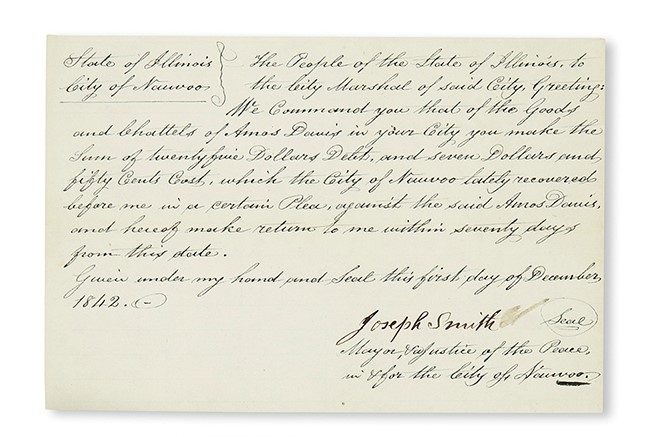 State of Illinois
City of Nauvoo
The People of the State of Illinois, to
the City Marshal of said City, Greeting:
We Command you that of the Goods
and Chattels of Amos Davis in your City you make the
Sum of twenty five Dollars Debt, and seven Dollars and
fifty Cents Cost, which the City of Nauvoo lately recovered
before me in a certain Plea, against the said Amos Davis,
and hereof make return to me within seventy days
from this date.
Given under my hand and Seal this first day of December
1842.
Joseph Smith
Seal
Mayor, & Justice of the Peace,
in & for the City of, Nauvoo.